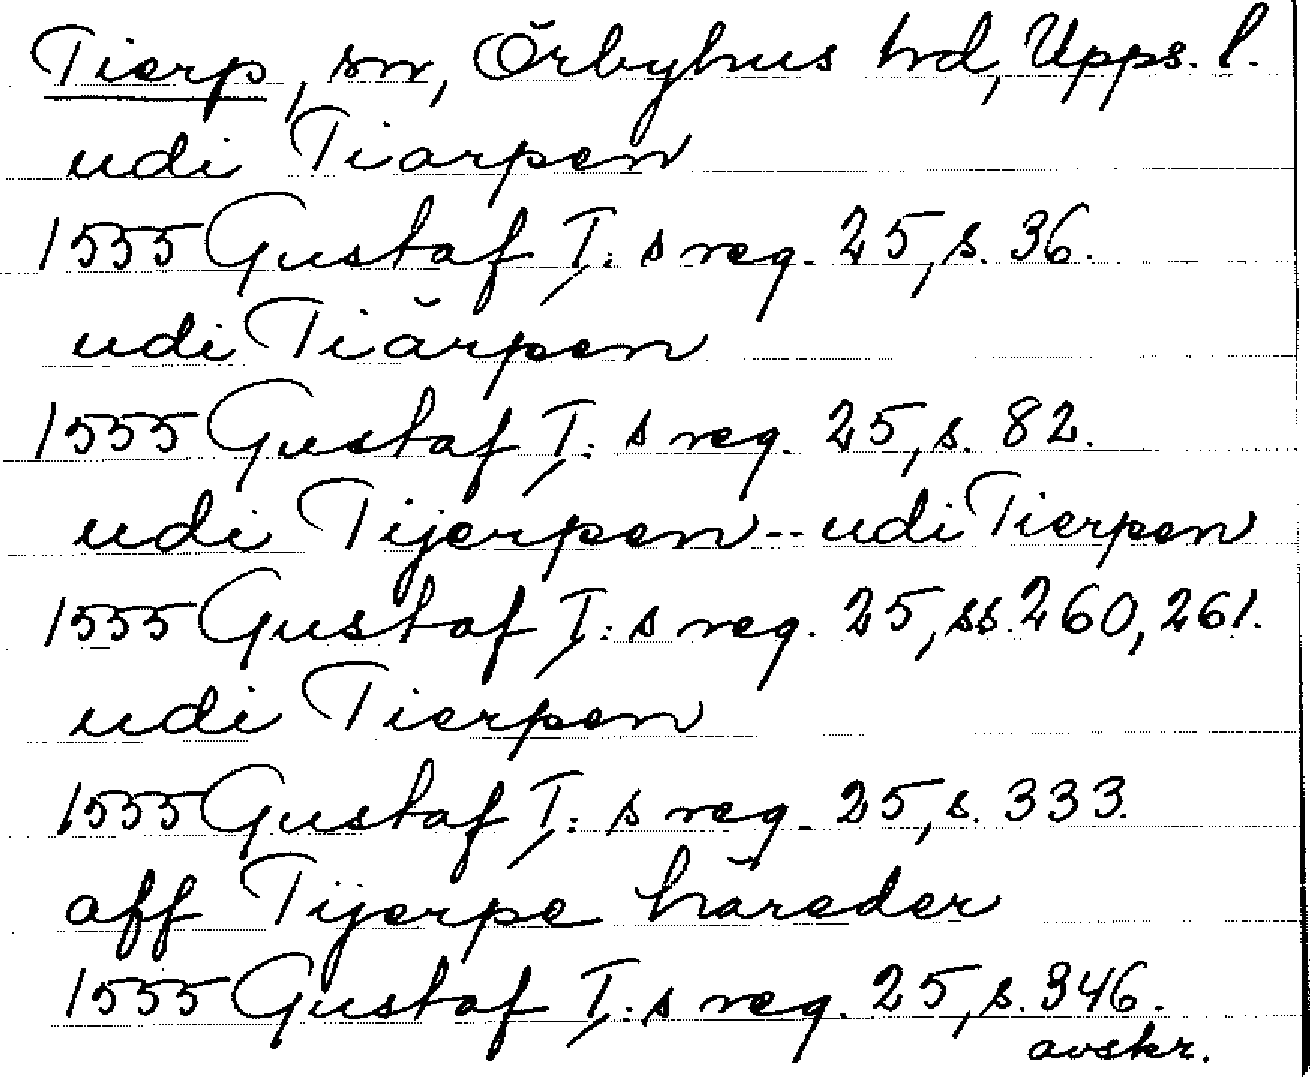 Tierp, sn, Örbyhus hd, Upps. l.
udi Tiarpen
1555 Gustaf I: s reg. 25, s. 36.
udi Tiärpen
1555 Gustaf I: s reg. 25, s. 82.
udi Tijerpen -- udi Tierpen
1555 Gustaf I: s reg. 25, ss. 260, 261.
udi Tierpen
1555 Gustaf I: s reg. 25, s. 333.
aff Tijerpe häreder
1555 Gustaf I: s reg. 25, s. 346.
avskr.